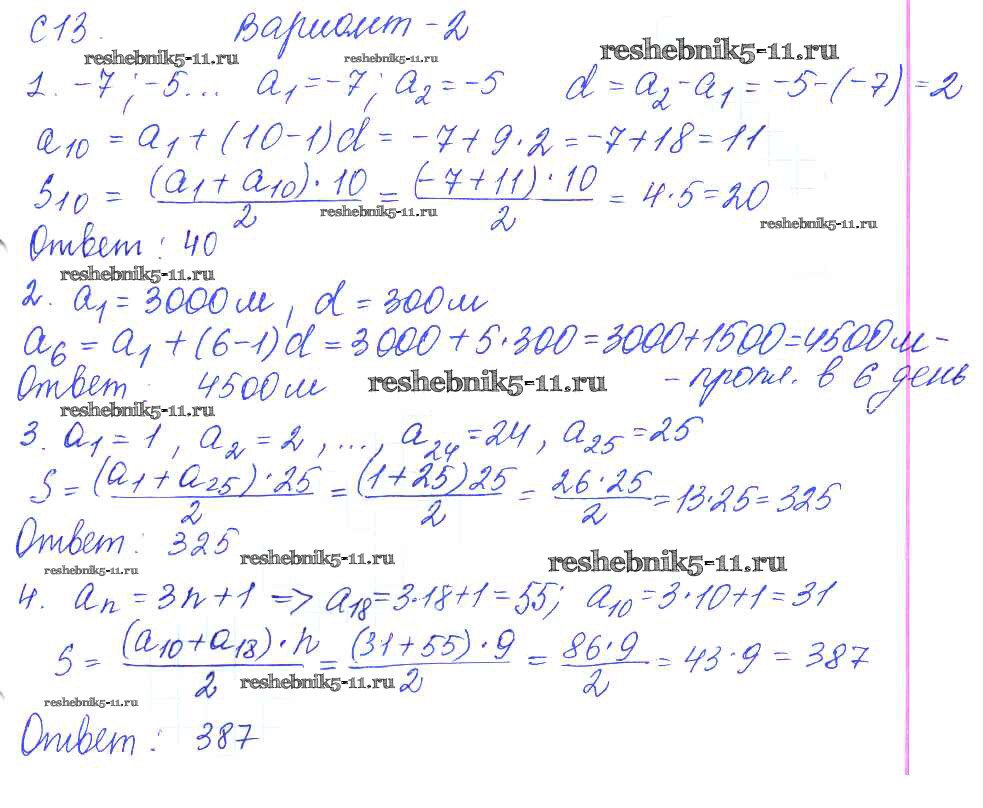 С13. Вариант-2
reshebnik5-11.ru reshebnik5-11.ru reshebnik5-11.ru
1. -7; -5... a₁ = -7; a₂ = -5 d = a₂ - a₁ = -5 - (-7) = 2
a₁₀ = a₁ + (10-1)d = -7 + 9·2 = -7 + 18 = 11
S₁₀ = (a₁ + a₁₀)·10 / 2 = (-7 + 11)·10 / 2 = 4·5 = 20
reshebnik5-11.ru reshebnik5-11.ru
Ответ: 40
reshebnik5-11.ru
2. a₁ = 3000 м, d = 300 м
a₆ = a₁ + (6-1)d = 3000 + 5·300 = 3000 + 1500 = 4500 м -
- пропл. в 6 день
Ответ 4500 м reshebnik5-11.ru
reshebnik5-11.ru
3. a₁ = 1, a₂ = 2, ..., a₂₄ = 24, a₂₅ = 25
S = (a₁ + a₂₅)·25 / 2 = (1 + 25)25 / 2 = 26·25 / 2 = 13·25 = 325
Ответ: 325 reshebnik5-11.ru reshebnik5-11.ru
reshebnik5-11.ru
4. aₙ = 3n + 1 => a₁₈ = 3·18 + 1 = 55; a₁₀ = 3·10 + 1 = 31
S = (a₁₀ + a₁₈)·n / 2 = (31 + 55)·9 / 2 = 86·9 / 2 = 43·9 = 387
reshebnik5-11.ru reshebnik5-11.ru
Ответ: 387